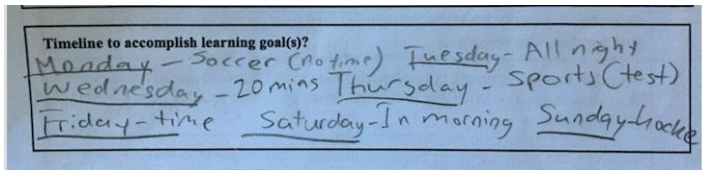 Timeline to accomplish learning goal(s)?
Monday - Soccer (no time) Tuesday - All night
Wednesday - 20 mins Thursday - Sports (test)
Friday - time Saturday - In morning Sunday - hocke